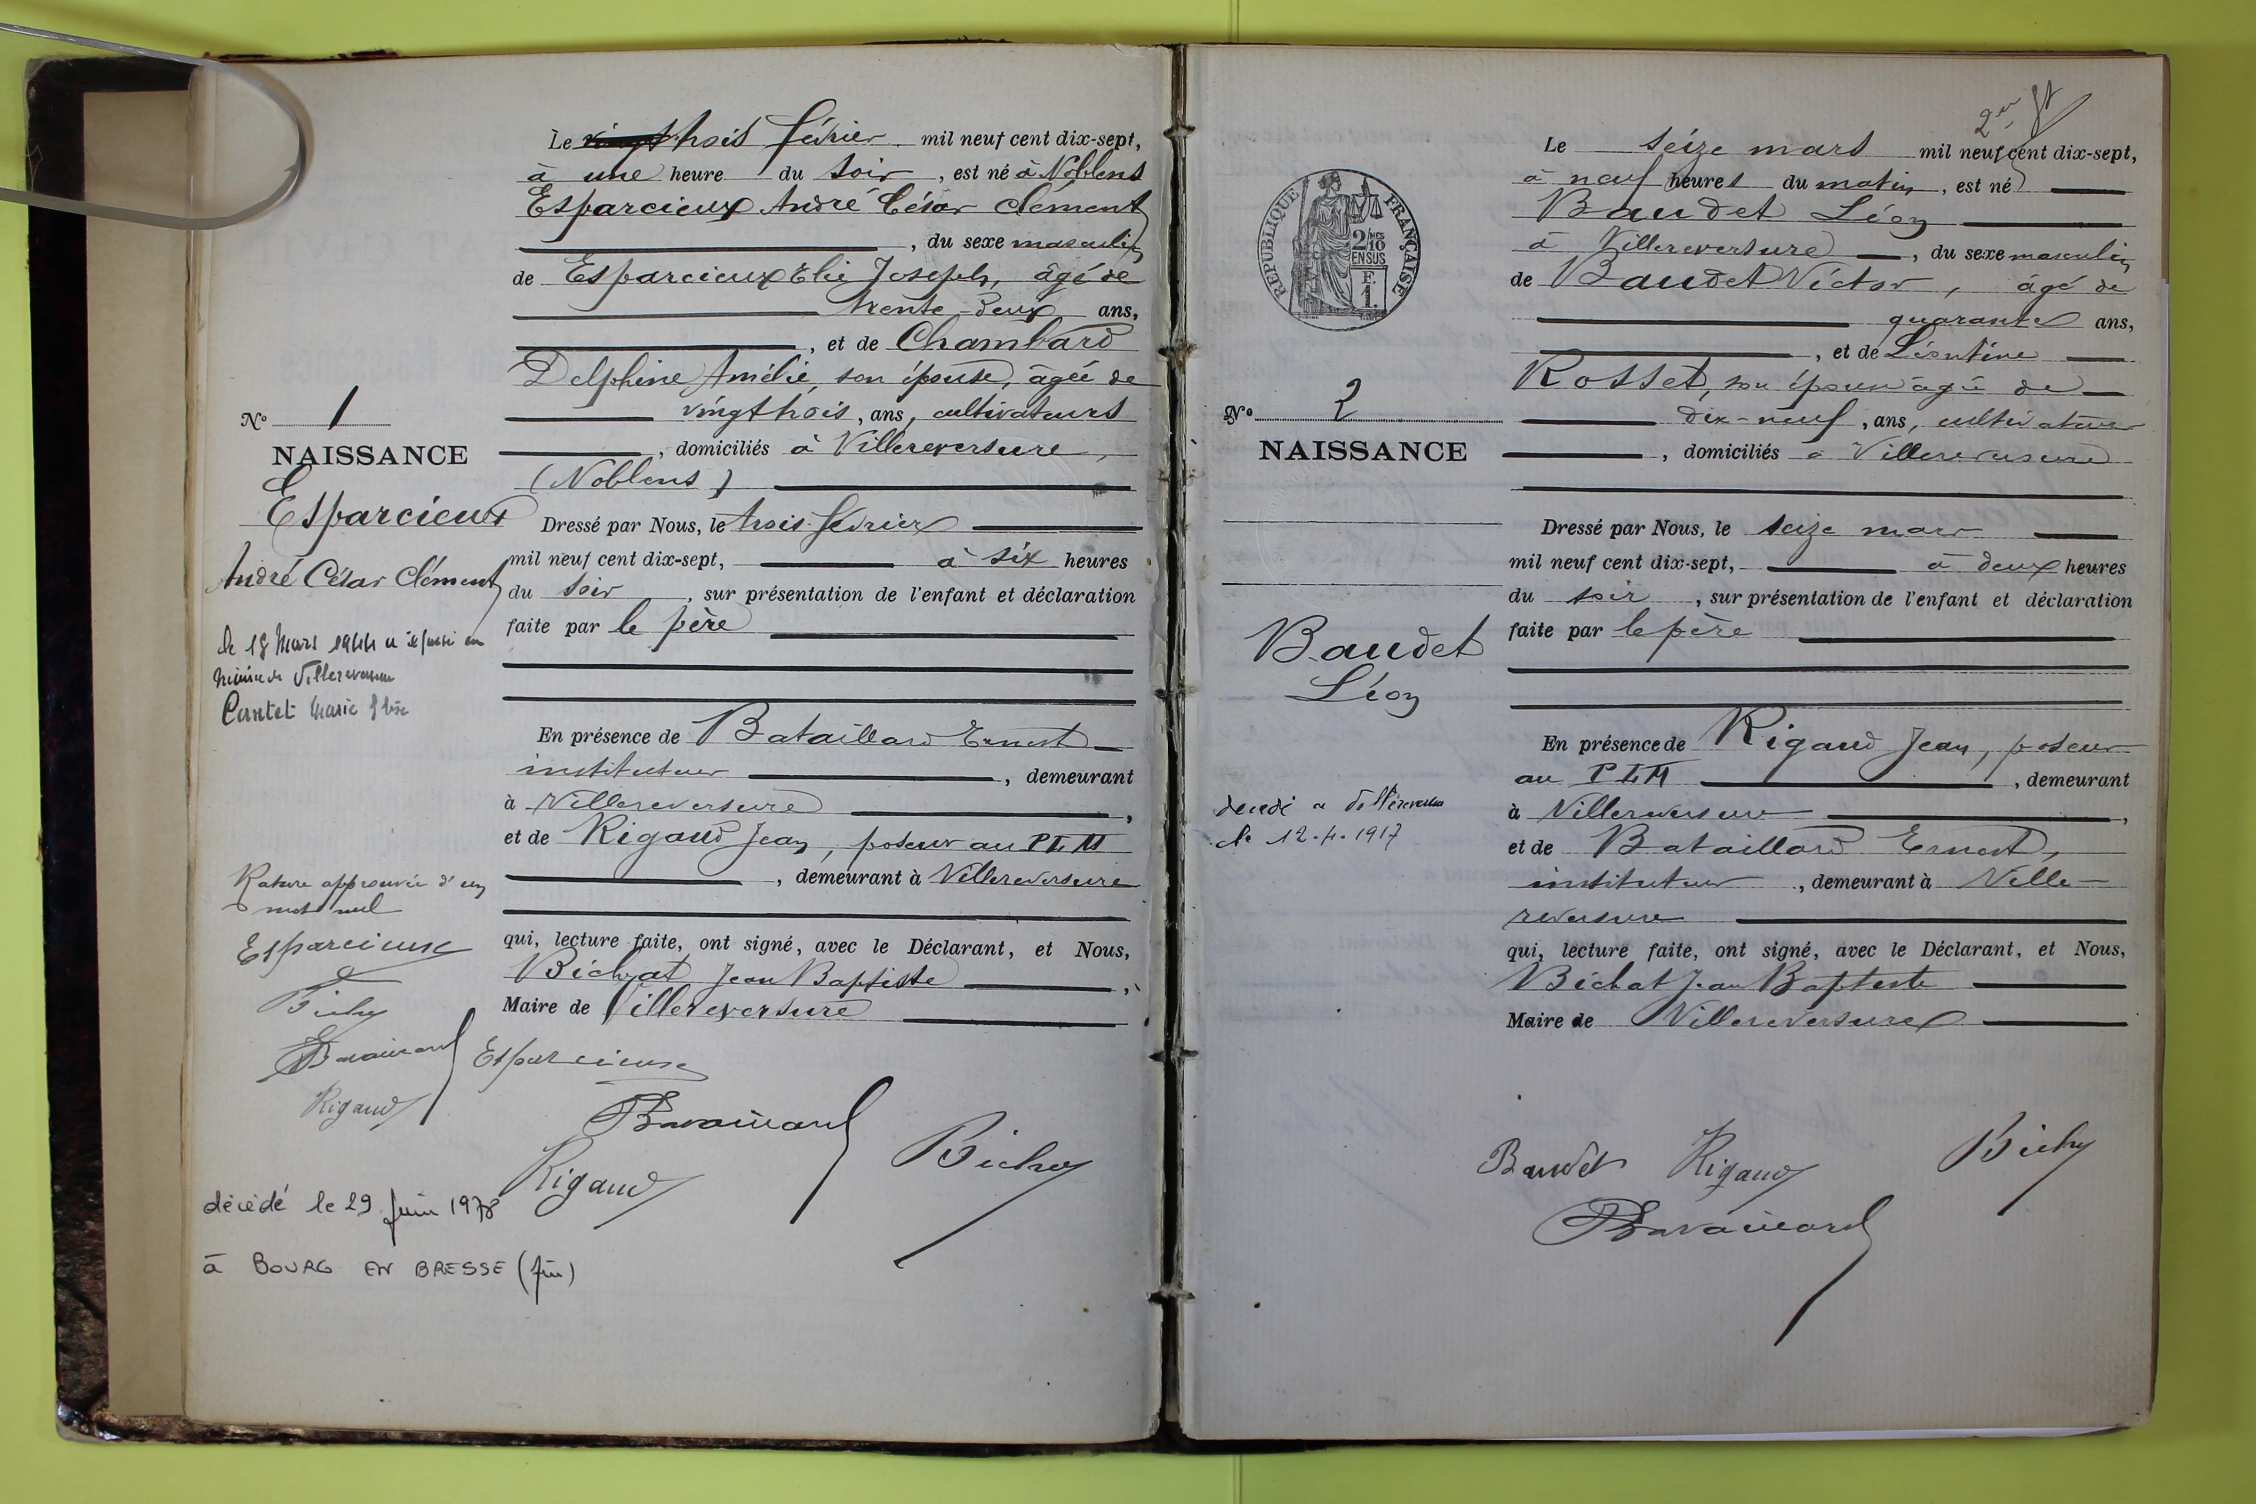 Le vingt trois février mil neuf cent dix-sept,
à une heure du soir, est né à Noblens
Esparcieux André César Clément
, du sexe masculin
de Esparcieux Elie Joseph, âgé de
trente-deux ans,
, et de Chambard
Delphine Amélie, son épouse, âgée de
vingt trois, ans, cultivateurs
, domiciliés à Villereversure,
(Noblens)
Dressé par Nous, le trois février
mil neuf cent dix-sept, à six heures
du soir, sur présentation de l'enfant et déclaration
faite par le père
En présence de Bataillard Ernest
instituteur, demeurant
à Villereversure,
et de Rigaud Jean, poseur au PLM
, demeurant à Villereversure
qui, lecture faite, ont signé, avec le Déclarant, et Nous,
Bichat Jean Baptiste,
Maire de Villereversure
Esparcieux
Bataillard
Rigaud
Bichat
No 1
NAISSANCE
Esparcieux
André César Clément
Le 18 Mars 1944 a épousé en
mairie de Villereversure
Cantet Marie
Rature approuvée d'un
mot nul
Esparcieux
Bichat
Bataillard
Rigaud
décédé le 29 Juin 1978
à BOURG EN BRESSE (Ain)
2
RÉPUBLIQUE FRANÇAISE
2/10 MES
EN SUS
F.
1.
Le seize mars mil neuf cent dix-sept,
à neuf heures du matin, est né
Baudet Léon
à Villereversure, du sexe masculin
de Baudet Victor, âgé de
quarante ans,
, et de Léontine
Rosset, son épouse âgée de
dix-neuf, ans, cultivateurs
, domiciliés à Villereversure
Dressé par Nous, le seize mars
mil neuf cent dix-sept, à deux heures
du soir, sur présentation de l'enfant et déclaration
faite par le père
En présence de Rigaud Jean, poseur
au PLM, demeurant
à Villereversure,
et de Bataillard Ernest,
instituteur, demeurant à Ville-
reversure
qui, lecture faite, ont signé, avec le Déclarant, et Nous,
Bichat Jean Baptiste
Maire de Villereversure
Baudet Rigaud Bichat
Bataillard
No 2
NAISSANCE
Baudet
Léon
décédé à Villereversure
le 12.4.1917